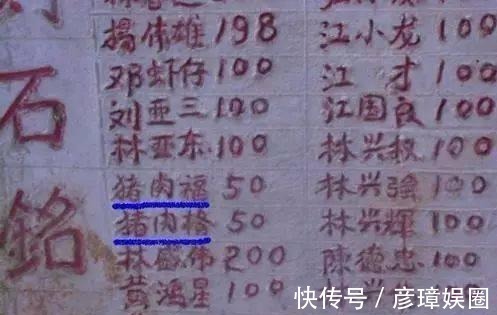 石
銘
揚伟雄 198
邓虾仔 100
刘亚三 100
林亚东 100
猪肉福 50
猪肉格 50
林盛伟 200
黄鸿星 100
江小龙 100
江才 100
江国良 100
林兴权 100
林兴强 100
林兴辉 100
陳德忠 100
100
快传号 / 彦璋娱圈